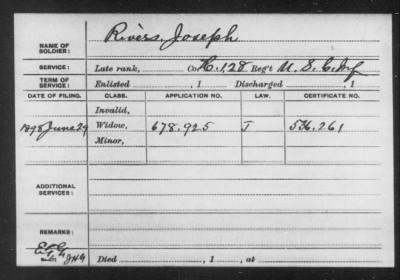 NAME OF SOLDIER: Rivers, Joseph
SERVICE: Late rank, Co. H. 128 Reg't U. S. C. Inf
TERM OF SERVICE: Enlisted , 1 Discharged , 1
DATE OF FILING. CLASS. APPLICATION NO. LAW. CERTIFICATE NO.
Invalid,
1898 June 29 Widow, 678.925 J 536.261
Minor,
ADDITIONAL SERVICES:
REMARKS:
JHG Died , 1 , at